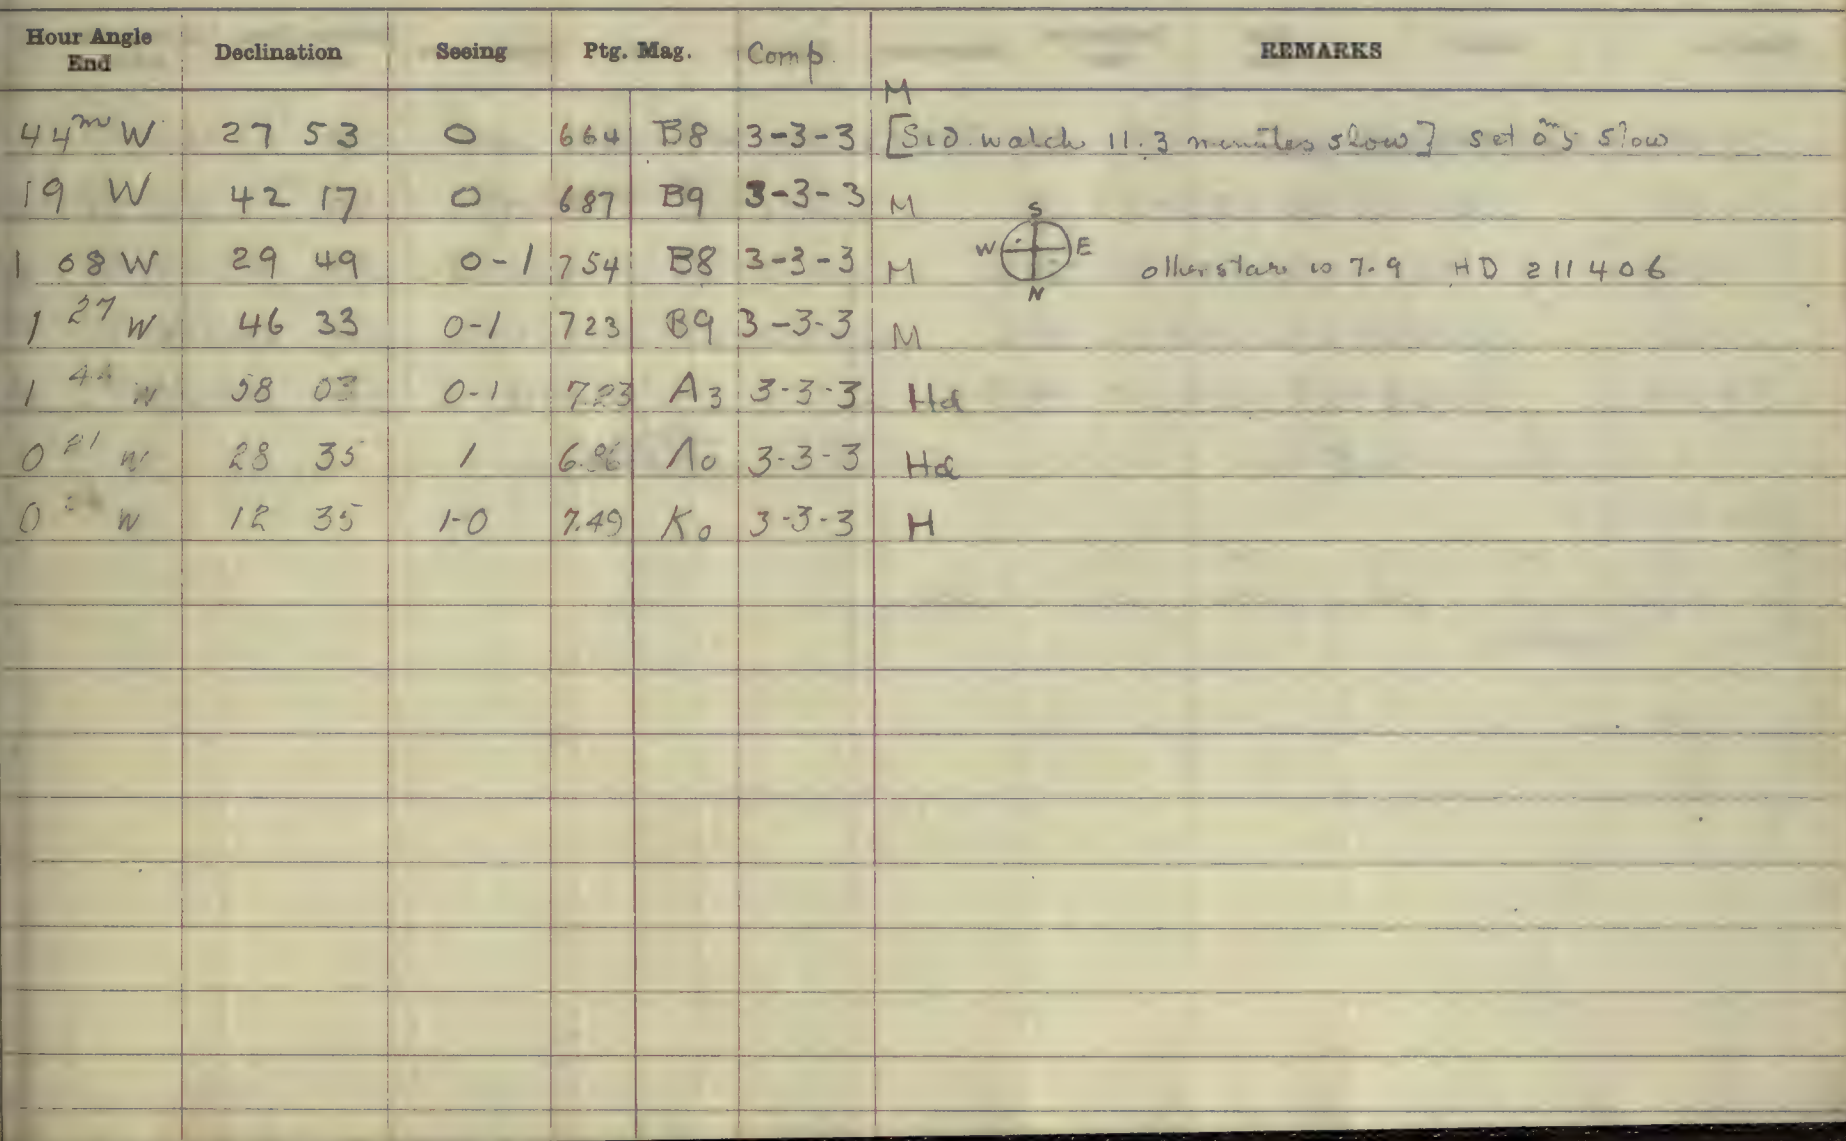 Hour Angle End Declination Seeing Ptg. Mag. Comp. REMARKS
M
44m W 27 53 0 664 B8 3-3-3 [Sid. watch 11.3 minutes slow] set 0m5 slow
19 W 42 17 0 687 B9 3-3-3 M
S
1 08 W 29 49 0-1 754 B8 3-3-3 M W E other star is 7.9 HD 211406
N
1 27 W 46 33 0-1 723 B9 3-3-3 M
1 44 W 58 03 0-1 7.23 A3 3-3-3 Hd
0 W 28 35 1 6.96 A0 3-3-3 Hd
0 W 12 35 1-0 7.49 K0 3-3-3 H